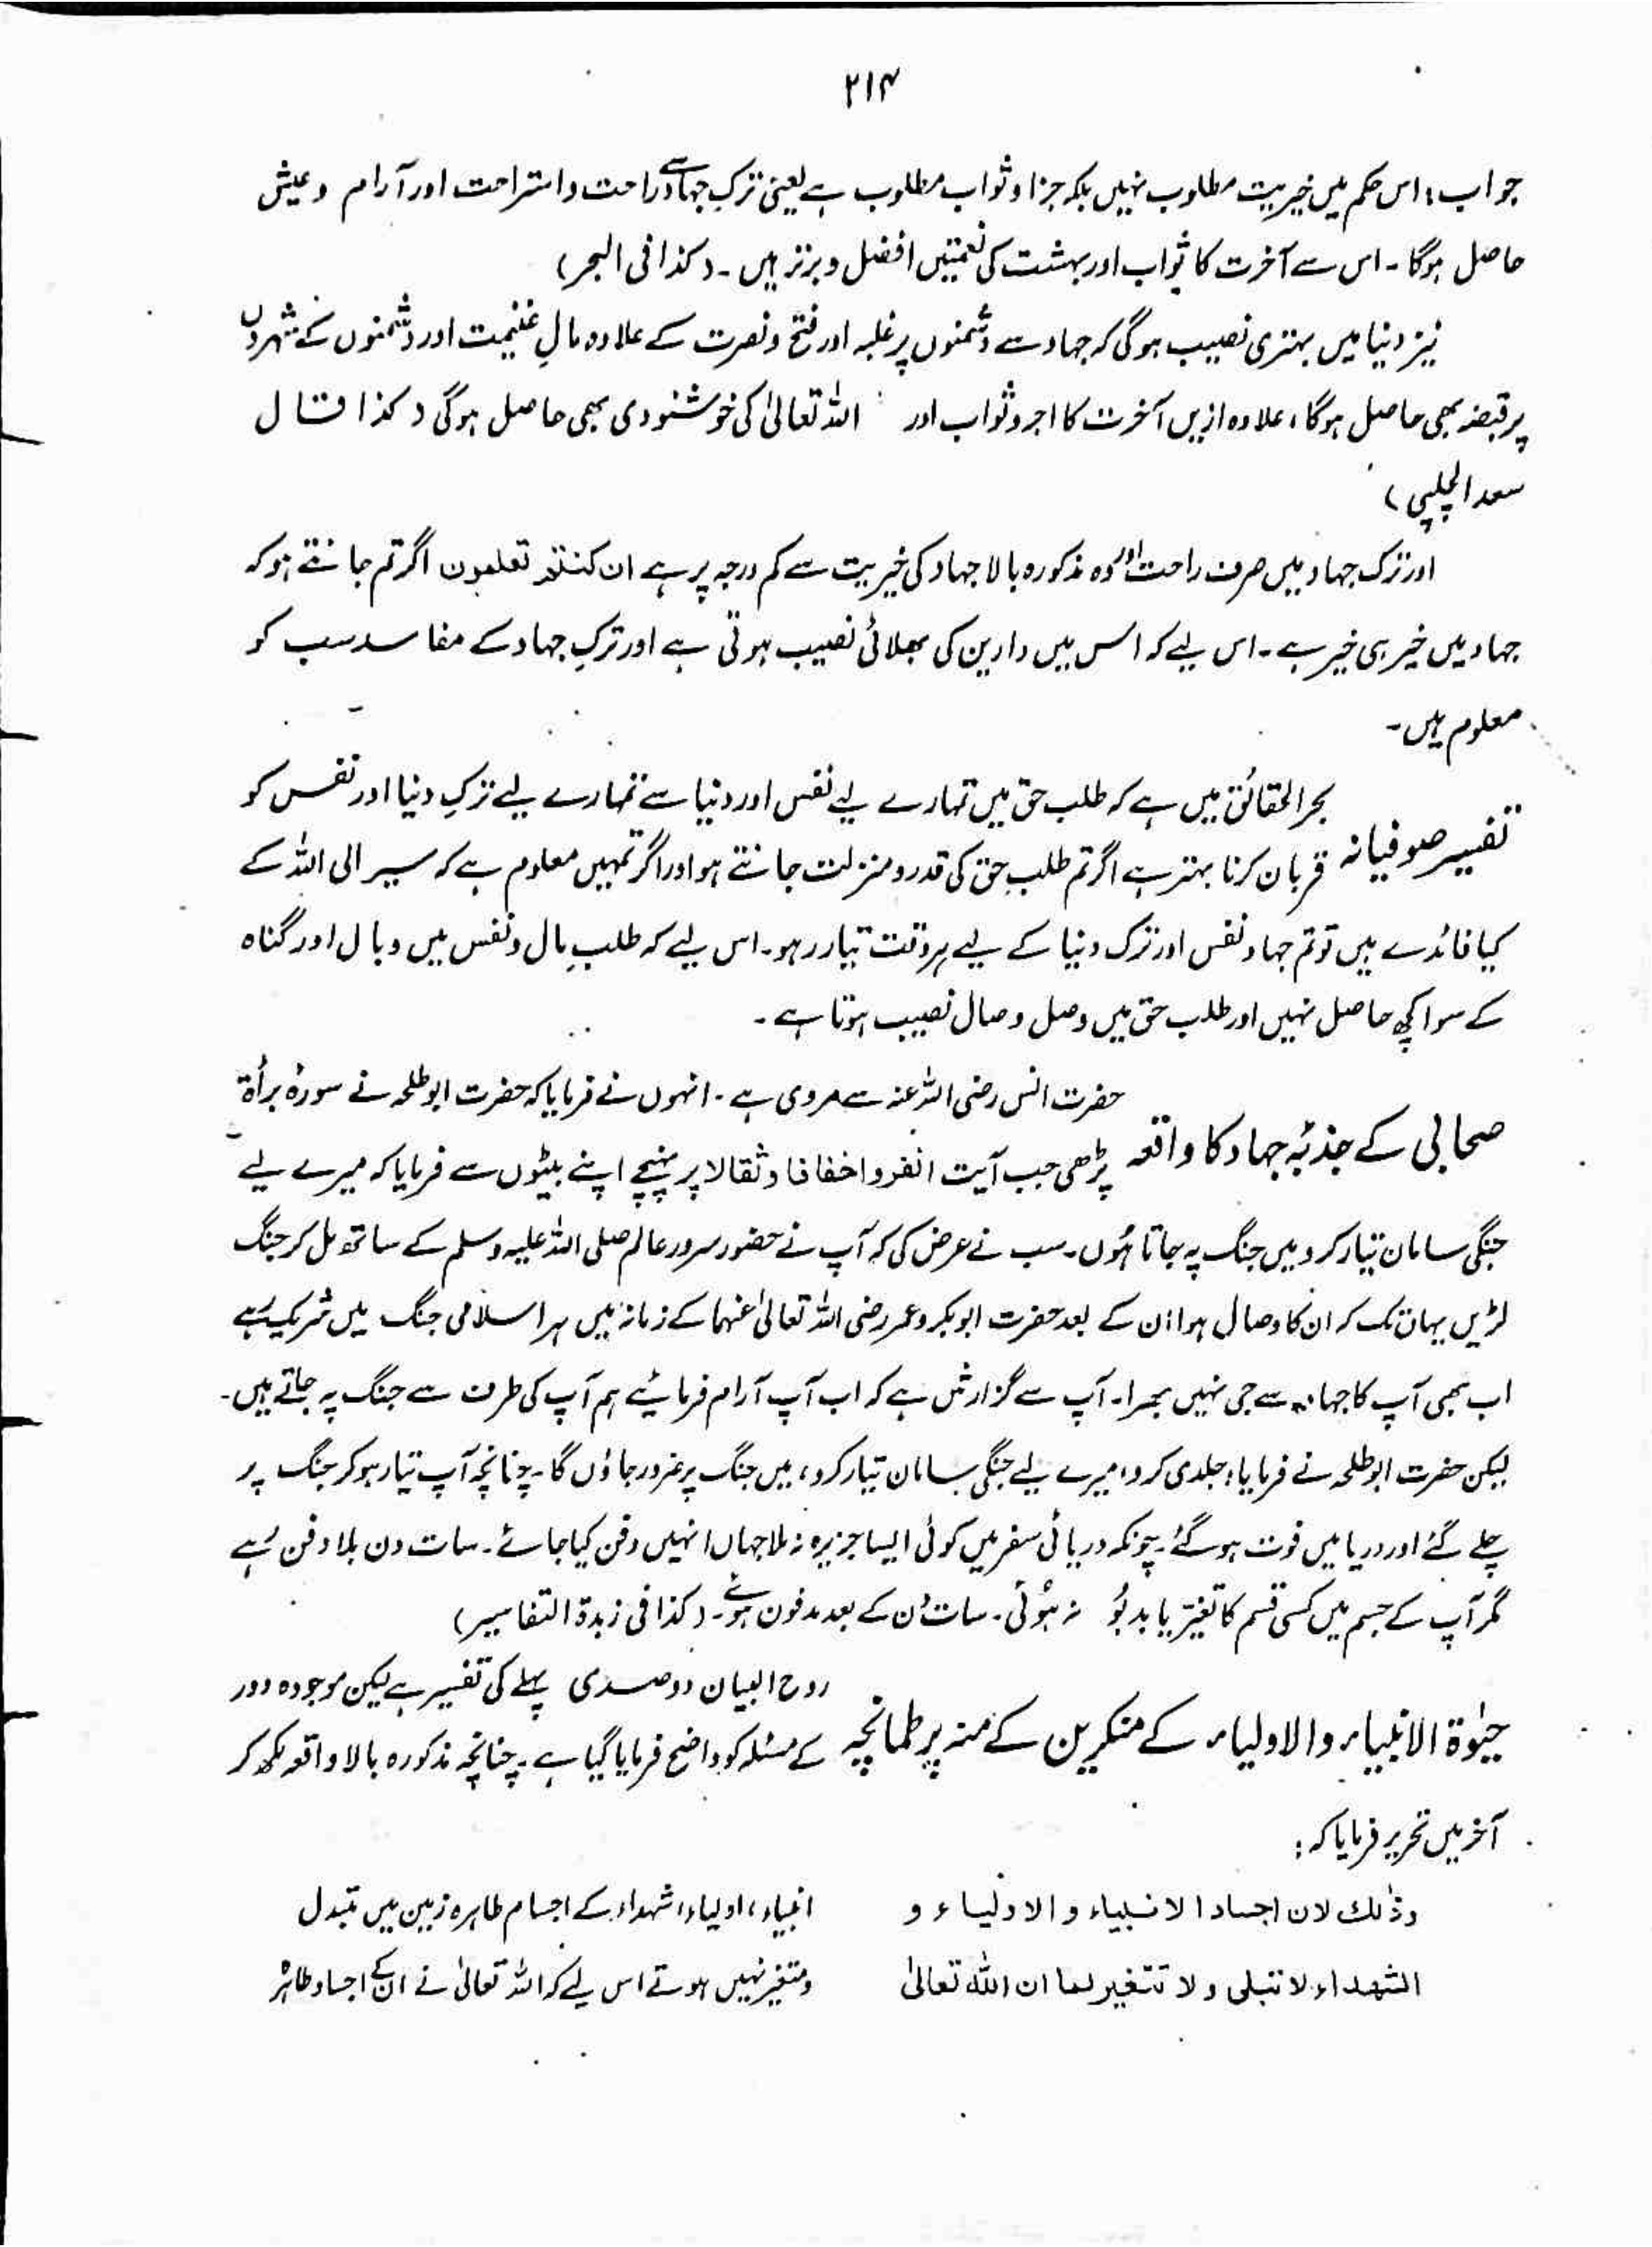 ۲۱۴
جواب: اس حکم میں خیریت مطلوب نہیں بلکہ جزا و ثواب مطلوب ہے یعنی ترکِ جہاد سے راحت و استراحت اور آرام و عیش
حاصل ہوگا۔ اس سے آخرت کا ثواب اور بہشت کی نعمتیں افضل و برتر ہیں۔ (کذا فی البحر)
نیز دنیا میں بہتری نصیب ہوگی کہ جہاد سے دشمنوں پر غلبہ اور فتح و نصرت کے علاوہ مالِ غنیمت اور دشمنوں کے شہروں
پر قبضہ بھی حاصل ہوگا، علاوہ ازیں آخرت کا اجر و ثواب اور اللہ تعالیٰ کی خوشنودی بھی حاصل ہوگی (کذا قال
سعد الچلپی)
اور ترک جہاد میں صرف راحت اور وہ مذکورہ بالا جہاد کی خیریت سے کم درجہ پر ہے ان کنتم تعلمون اگر تم جانتے ہو کہ
جہاد میں خیر ہی خیر ہے۔ اس لیے کہ اس میں دارین کی بھلائی نصیب ہوتی ہے اور ترکِ جہاد کے مفاسد سب کو
معلوم ہیں۔
تفسیر صوفیانہ بحر الحقائق میں ہے کہ طلب حق میں تمہارے لیے نفس اور دنیا سے تمہارے لیے ترکِ دنیا اور نفس کو
قربان کرنا بہتر ہے اگر تم طلبِ حق کی قدر و منزلت جانتے ہو اور اگر تمہیں معلوم ہے کہ سیر الی اللہ کے
کیا فائدے ہیں تو تم جہاد نفس اور ترک دنیا کے لیے ہر وقت تیار رہو۔ اس لیے کہ طلبِ مال و نفس میں وبال اور گناہ
کے سوا کچھ حاصل نہیں اور طلب حق میں وصل و صال نصیب ہوتا ہے۔
صحابی کے جذبۂ جہاد کا واقعہ حضرت انس رضی اللہ عنہ سے مروی ہے۔ انہوں نے فرمایا کہ حضرت ابوطلحہ نے سورۂ برأۃ
پڑھی جب آیت انفروا خفافا وثقالا پر پہنچے اپنے بیٹوں سے فرمایا کہ میرے لیے
جنگی سامان تیار کرو میں جنگ پہ جاتا ہُوں۔ سب نے عرض کی کہ آپ نے حضور سرور عالم صلی اللہ علیہ وسلم کے ساتھ مل کر جنگ
لڑیں یہاں تک کہ ان کا وصال ہوا ان کے بعد حضرت ابوبکر و عمر رضی اللہ تعالیٰ عنہما کے زمانہ میں ہر اسلامی جنگ میں شریک رہے
اب بھی آپ کا جہاد سے جی نہیں بھرا۔ آپ سے گزارش ہے کہ اب آپ آرام فرمائیے ہم آپ کی طرف سے جنگ پہ جاتے ہیں۔
لیکن حضرت ابوطلحہ نے فرمایا: جلدی کرو، میرے لیے جنگی سامان تیار کرو، میں جنگ پر ضرور جاؤں گا۔ چنانچہ آپ تیار ہو کر جنگ پر
چلے گئے اور دریا میں فوت ہوگئے۔ چونکہ دریائی سفر میں کوئی ایسا جزیرہ نہ ملا جہاں انہیں دفن کیا جائے۔ سات دن بلا دفن رہے
مگر آپ کے جسم میں کسی قسم کا تغیّر یا بدبُو نہ ہُوئی۔ سات دن کے بعد مدفون ہوئے۔ (کذا فی زبدۃ التفاسیر)
حیٰوۃ الانبیاء والاولیاء کے منکرین کے منہ پر طمانچہ روح البیان دو صدی پہلے کی تفسیر ہے لیکن موجودہ دور
کے مسئلہ کو واضح فرمایا گیا ہے۔ چنانچہ مذکورہ بالا واقعہ لکھ کر
آخر میں تحریر فرمایا کہ:
وذٰلك لان اجساد الانبیاء و الاولیاء و
الشهداء لا تبلى و لا تتغیر لما ان الله تعالیٰ
انبیاء، اولیاء، شہداء کے اجسام طاہرہ زمین میں تبدل
و متغیر نہیں ہوتے اس لیے کہ اللہ تعالیٰ نے ان کے اجساد طاہرہ